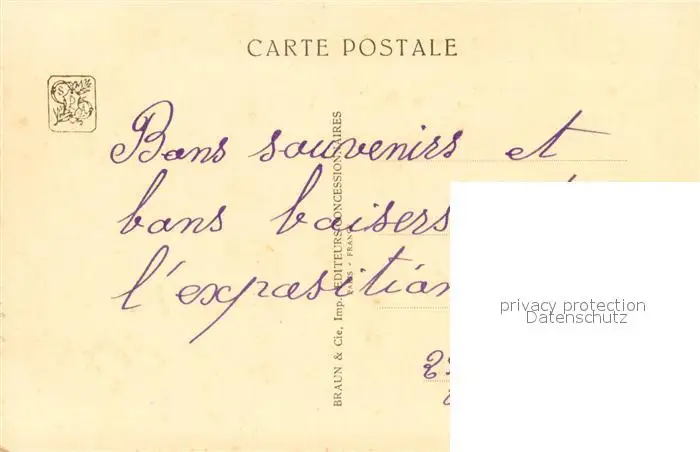 CARTE POSTALE
Bons souvenirs et
bons baisers
l'exposition
BRAUN & Cie, Imp.-EDITEURS CONCESSIONNAIRES
PARIS - FRANCE
privacy protection
Datenschutz